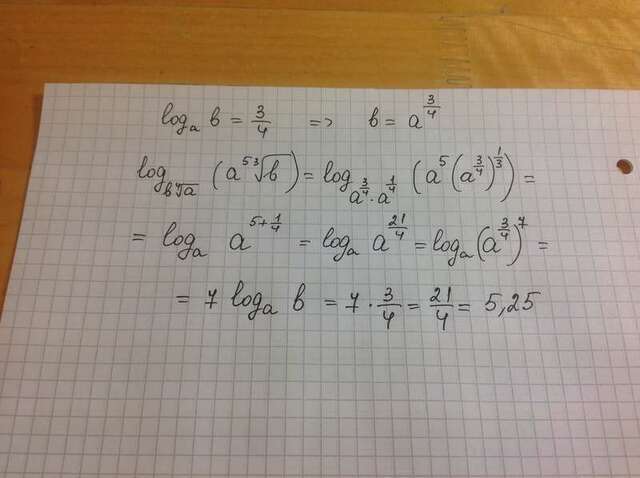 log_a b = 3/4 => b = a^(3/4)
log_(b∜a) (a⁵ ∛b) = log_(a^(3/4) · a^(1/4)) (a⁵ (a^(3/4))^(1/3)) =
= log_a a^(5+1/4) = log_a a^(21/4) = log_a (a^(3/4))^7 =
= 7 log_a b = 7 · 3/4 = 21/4 = 5,25